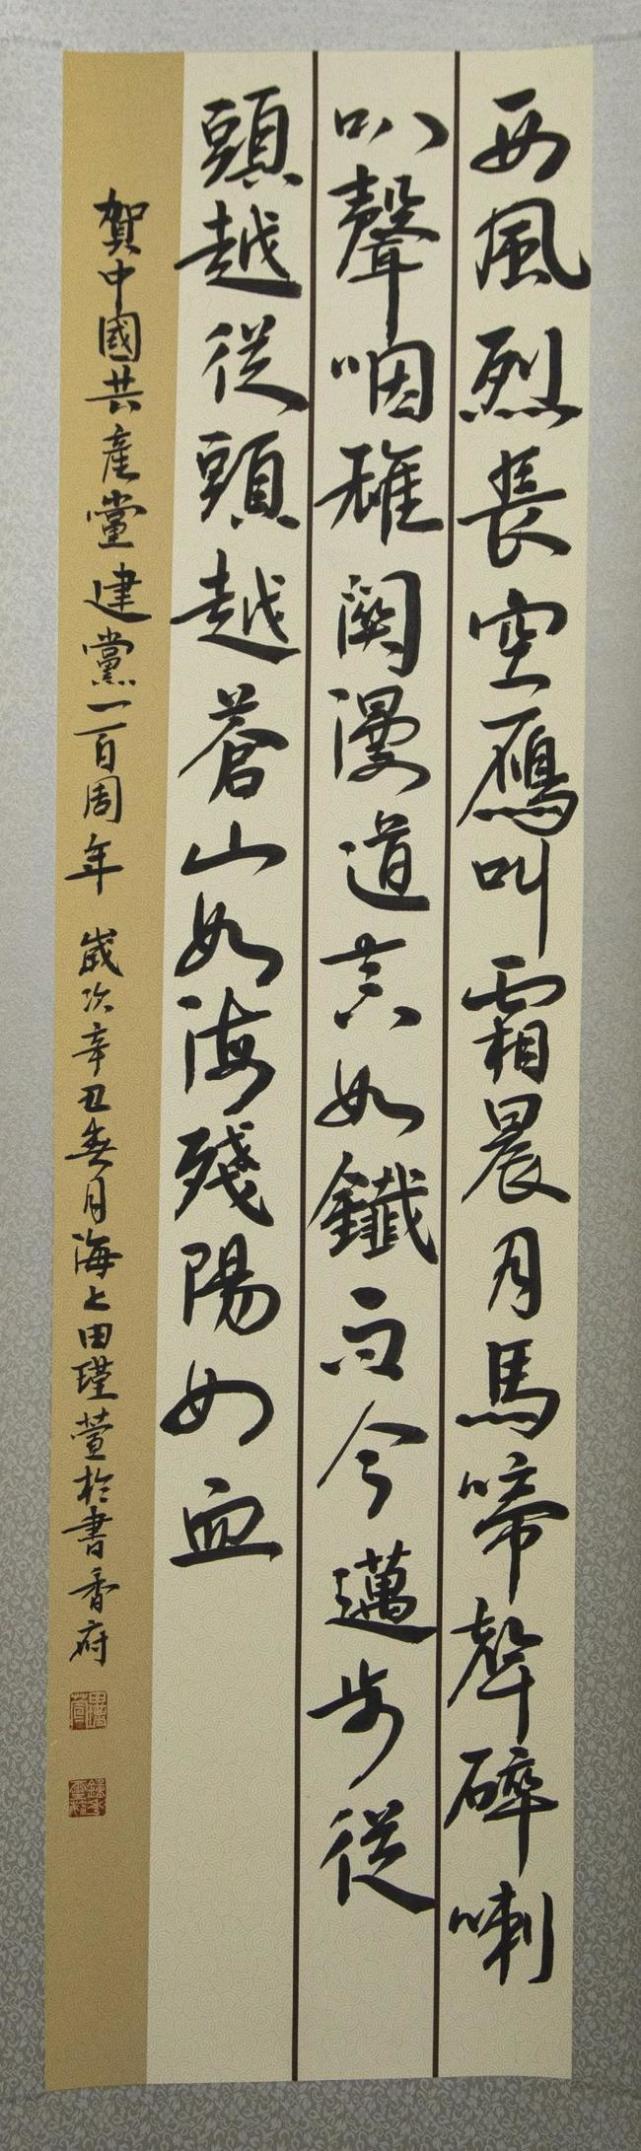 西風烈長空鴈叫霜晨月馬啼聲碎喇
叭聲咽雄關漫道真如鐵而今邁步從
頭越從頭越蒼山如海殘陽如血
賀中國共產黨建黨一百周年 歲次辛丑春月海上田瑾萱於書香府